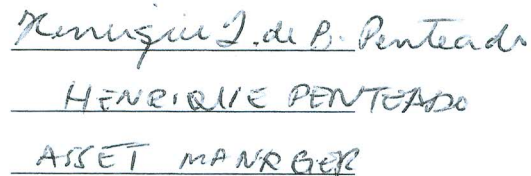 Henrique J. de B. Penteado
HENRIQUE PENTEADO
ASSET MANAGER